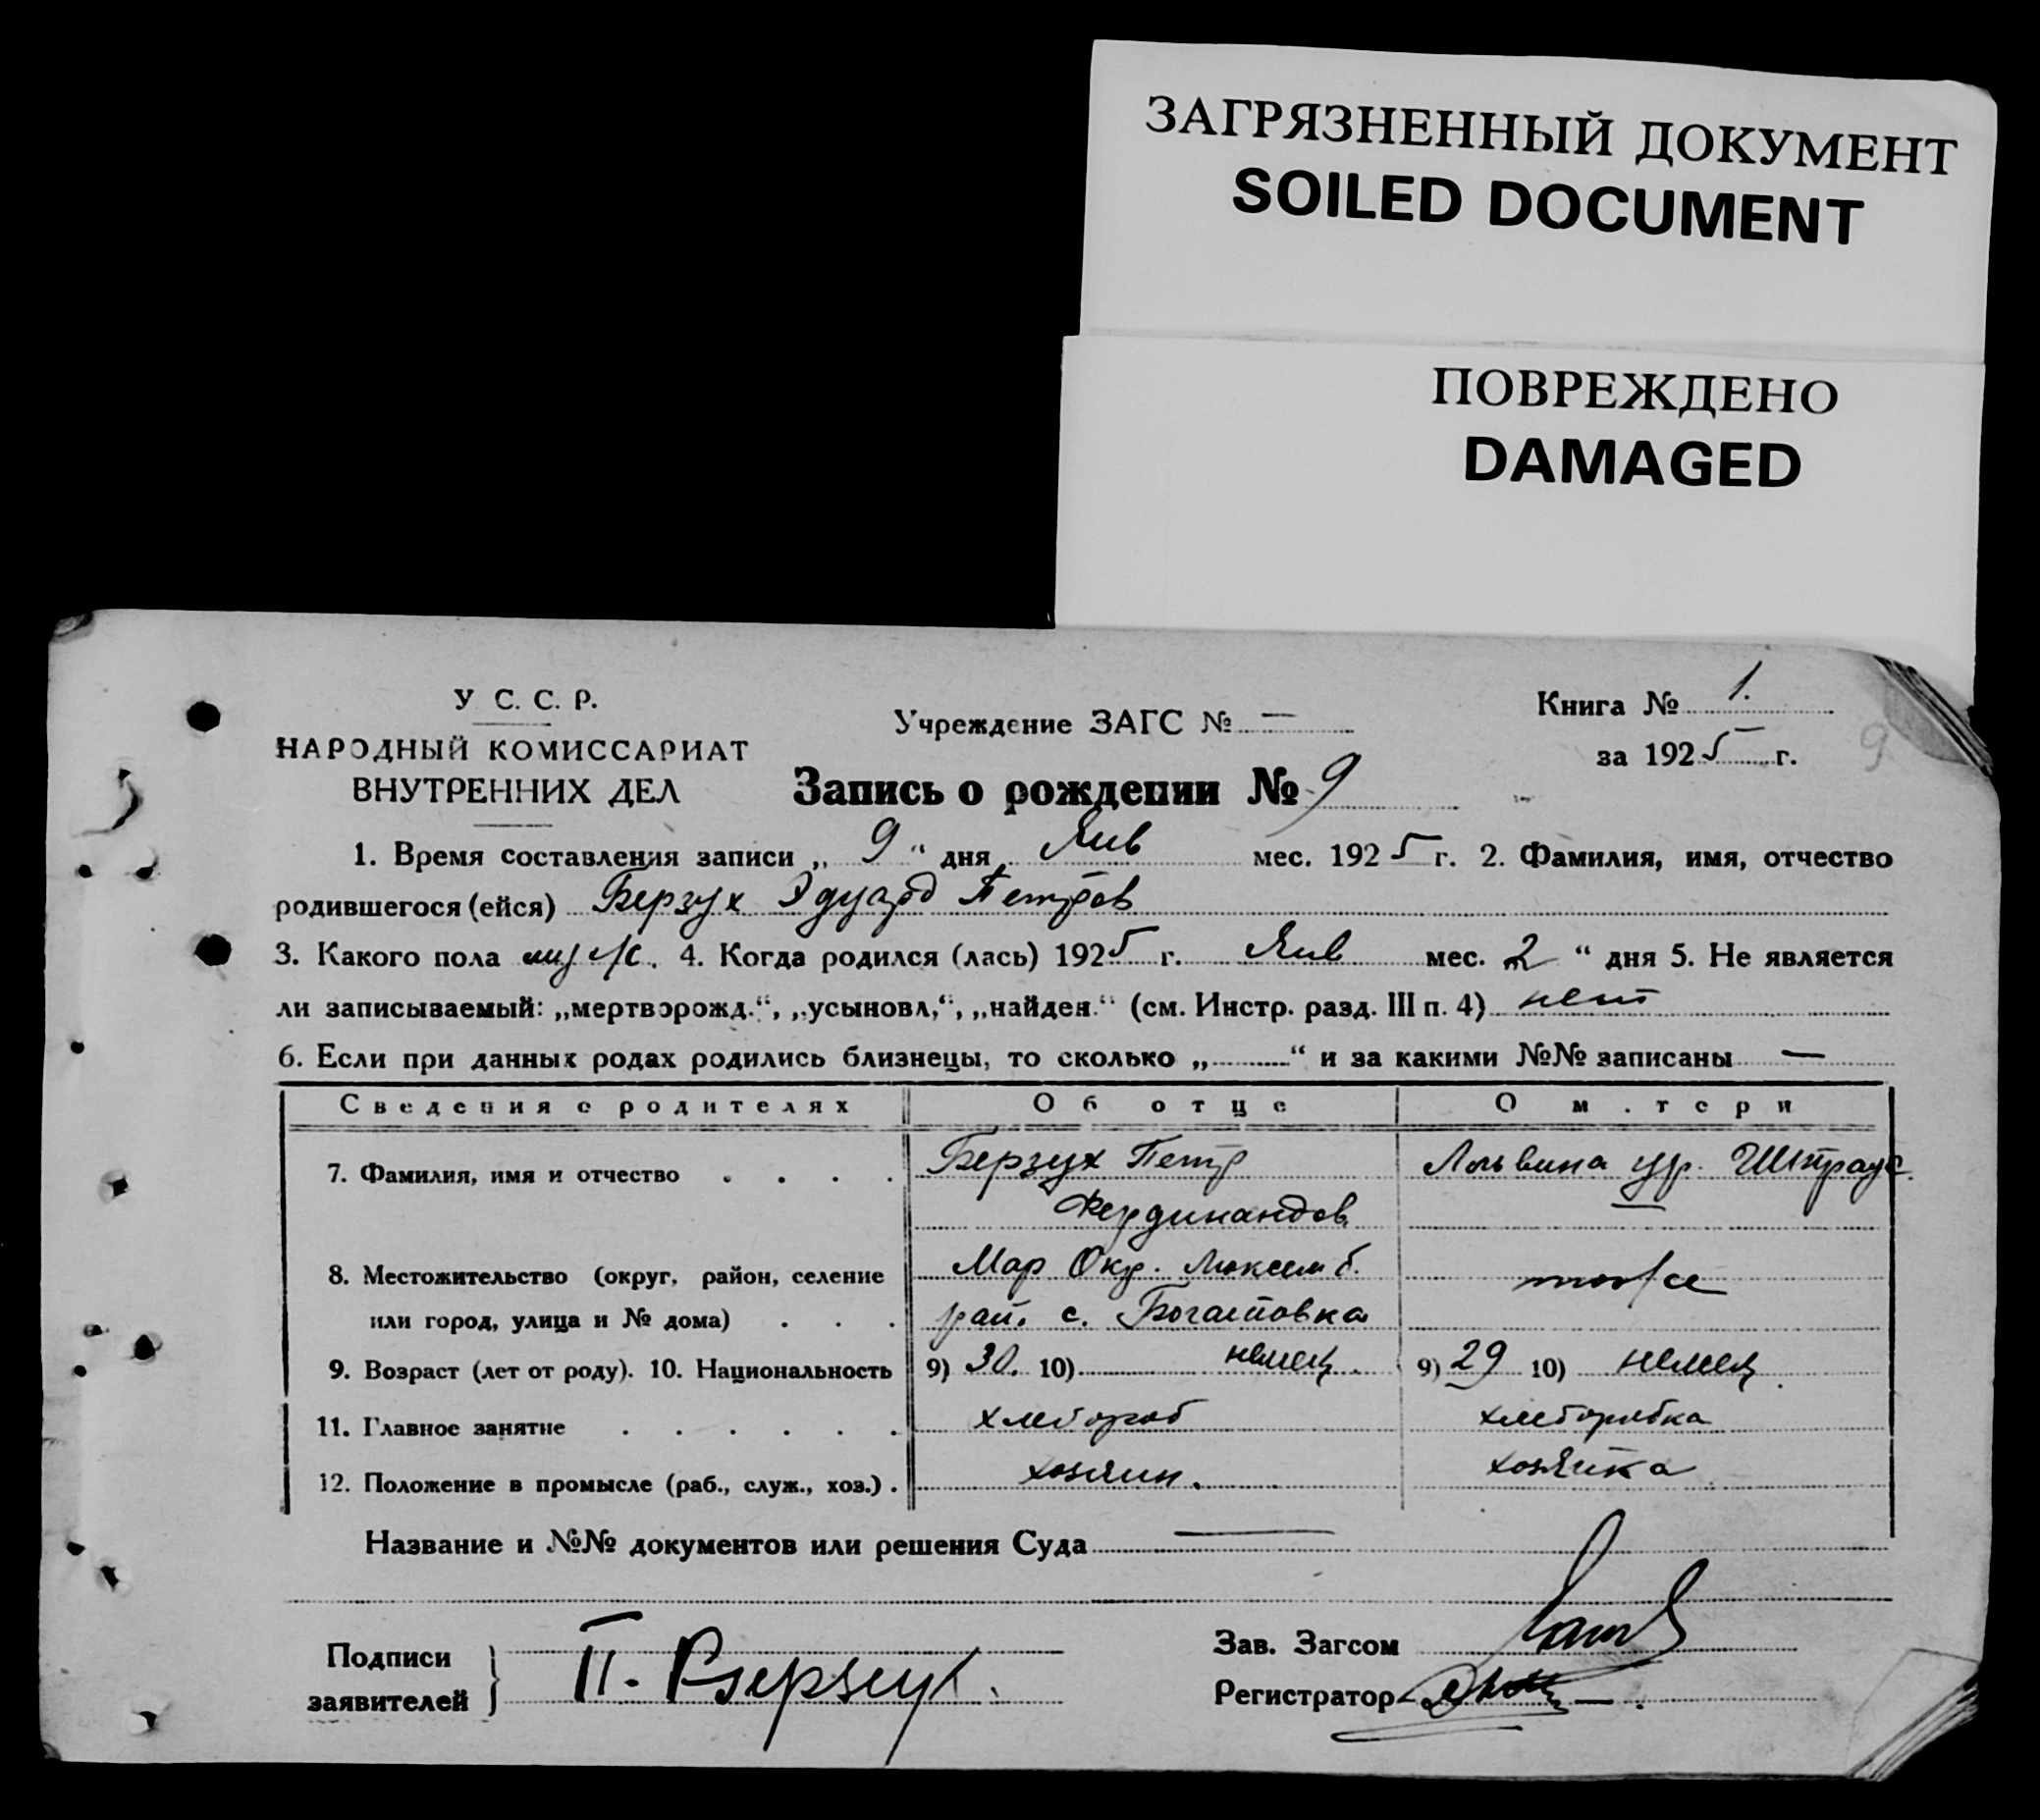 ЗАГРЯЗНЕННЫЙ ДОКУМЕНТ
SOILED DOCUMENT
ПОВРЕЖДЕНО
DAMAGED
У С. С. Р.
НАРОДНЫЙ КОМИССАРИАТ
ВНУТРЕННИХ ДЕЛ
Учреждение ЗАГС № —
Книга № 1.
за 1925 г.
9
Запись о рождении № 9
1. Время составления записи „ 9 “ дня Янв мес. 1925 г. 2. Фамилия, имя, отчество
родившегося (ейся) Берзух Эдуард Петров
3. Какого пола муж. 4. Когда родился (лась) 1925 г. Янв мес. 2 “ дня 5. Не является
ли записываемый: „мертворожд.“, „усыновл,“, „найден.“ (см. Инстр. разд. III п. 4) нет
6. Если при данных родах родились близнецы, то сколько „.........“ и за какими №№ записаны —
Сведения о родителях Об отце О м.тери
7. Фамилия, имя и отчество . . . . Берзух Петр Мальвина ур. Штраус.
Фердинандов
8. Местожительство (округ, район, селение Мар Окр. Люксемб. тоже
или город, улица и № дома) . . . рай. с. Богатовка
9. Возраст (лет от роду). 10. Национальность 9) 30. 10) немец. 9) 29 10) немец.
11. Главное занятие . . . . . . хлебороб хлеборобка
12. Положение в промысле (раб., служ., хоз.) . хозяин. хозяйка
Название и №№ документов или решения Суда —
Подписи
заявителей } П. Берзух.
Зав. Загсом
Регистратор